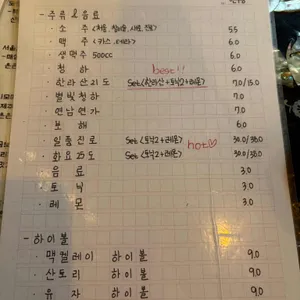 - 주류 & 음료
· 소 주 (처음, 참이슬, 새로, 진로) 5.5
· 맥 주 (카스, 테라) 6.0
· 생맥주 500cc 6.0
· 청 하 6.0
best!!
· 한라산 21도 Set (한라산+토닉2+레몬) 7.0/15.0
· 별빛청하 7.0
· 연남연가 7.0
· 보 해 6.0
· 일품진로 Set (토닉2+레몬) 30.0/38.0
hot♡
· 화요25도 Set (토닉2+레몬) 30.0/38.0
· 음 료 3.0
· 토 닉 3.0
· 레 몬 3.0
- 하이볼
· 맥켈레이 하이볼 9.0
· 산토리 하이볼 9.0
· 유자 하이볼 9.0